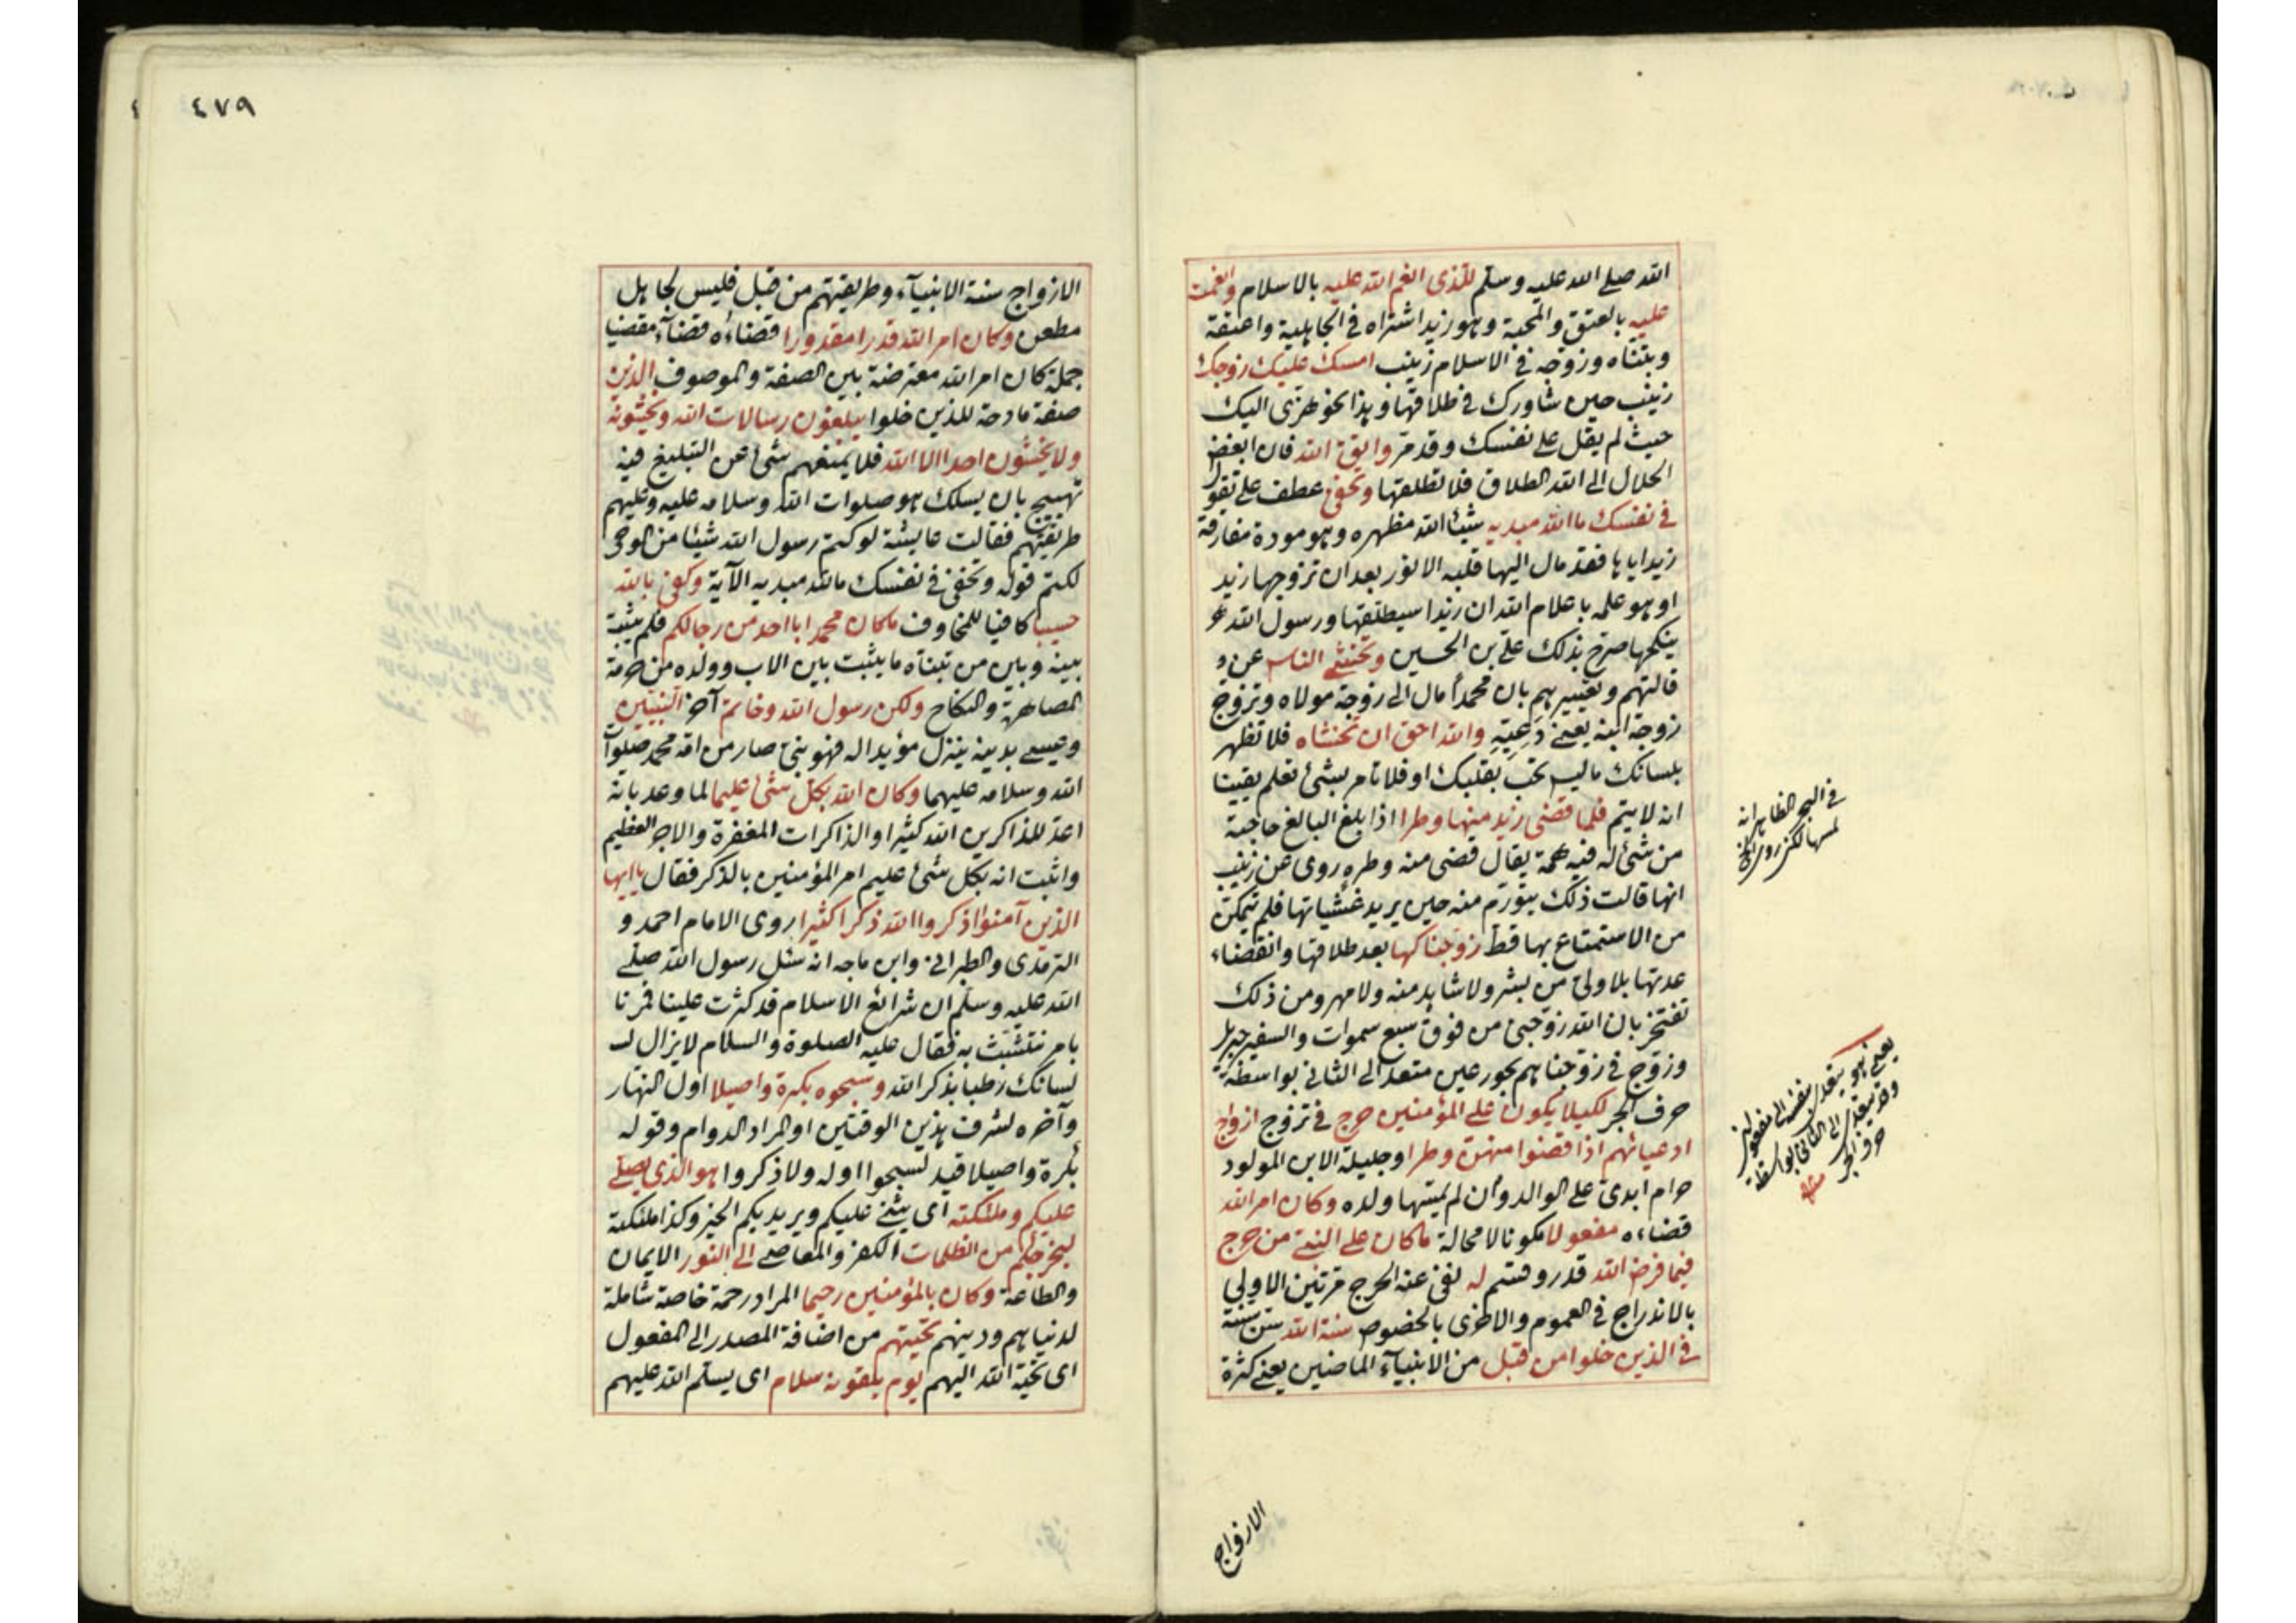 الله صلى الله عليه وسلم للذى انعم الله عليه بالاسلام وانعمت
عليه بالعتق والمحبة وهو زيد اشتراه فى الجاهلية واعتقه
وبتناه وزوجه فى الاسلام زينب امسك عليك زوجك
زينب حين شاورك فى طلاقها وهذا نحو هزى اليك
حيث لم يقل على نفسك وقد مر واتق الله فان ابغض
الحلال الى الله الطلاق فلا تطلقها وتخفى عطف على تقول
فى نفسك ما الله مبديه شيئا الله مظهره وهو مودة مفارقة
زيد اياها فقد مال اليها قلبه الانور بعد ان تزوجها زيد
او هو علمه باعلام الله ان زيدا سيطلقها ورسول الله
ينكحها صرح بذلك على بن الحسين وتخشى الناس عن
قالتهم وتعييرهم بان محمدا مال الى زوجة مولاه وتزوج
زوجة ابنه يعنى دعيّه والله احق ان تخشاه فلا تظهر
بلسانك ما ليس تحب بقلبك او فلا تامر بشئ تعلم يقينا
انه لا يتم فلما قضى زيد منها وطرا اذا بلغ البالغ حاجته
من شئ له فيه همة يقال قضى منه وطره روى عن زينب
انها قالت ذلك يتورم منه حين يريد غشيانها فلم يتمكن
من الاستمتاع بها قط زوجناكها بعد طلاقها وانقضاء
عدتها بلا ولى من بشر ولا شاهد منه ولا مهر ومن ذلك
تفتخر بان الله زوجنى من فوق سبع سموات والسفير جبريل
وزوج فى زوجناهم بحور عين متعد الى الثانى بواسطة
حرف الجر لكيلا يكون على المؤمنين حرج فى تزوج ازواج
ادعيائهم اذا قضوا منهن وطرا وحليلة الابن المولود
حرام ابدى على الوالد وان لم يمسها ولده وكان امر الله
قضاءه مفعولا مكونا لا محالة ما كان على النبى من حرج
فيما فرض الله قدر وقسم له نفى عنه الحرج مرتين الاولى
بالاندراج فى العموم والاخرى بالخصوص سنة الله سن سنة
فى الذين خلوا من قبل من الانبياء الماضين يعنى كثرة
فى البحر الظاهر انه
لمسها لكن روى
يعنى هو يتعدى بنفسه الى مفعولين
وقد يتعدى الى الثانى بواسطة
حرف الجر
منه
الازواج
٤٧٩
الازواج سنة الانبيآء وطريقتهم من قبل فليس لجاهل
مطعن وكان امر الله قدرا مقدورا قضاءه قضآء مقضيا
جملة كان امر الله معترضة بين الصفة والموصوف الذين
صفة مادحة للذين خلوا يبلغون رسالات الله ويخشونه
ولا يخشون احدا الا الله فلا يمنعهم شئ عن التبليغ فيه
تهييج بان يسلك هو صلوات الله وسلامه عليه وعليهم
طريقتهم فقالت عايشة لو كتم رسول الله شيئا من الوحى
لكتم قوله وتخفى فى نفسك ما الله مبديه الآية وكفى بالله
حسيبا كافيا للمخاوف ما كان محمد ابا احد من رجالكم فلم يثبت
بينه وبين من تبناه ما يثبت بين الاب وولده من حرمة
المصاهرة والنكاح ولكن رسول الله وخاتم آخر النبيين
وعيسى بدينه ينزل مؤيدا له فهو نبى صار من امة محمد صلوات
الله وسلامه عليهما وكان الله بكل شئ عليما لما وعد بانه
اعد للذاكرين الله كثيرا والذاكرات المغفرة والاجر العظيم
واثبت انه بكل شئ عليم امر المؤمنين بالذكر فقال يا ايها
الذين آمنوا اذكروا الله ذكرا كثيرا روى الامام احمد و
الترمذى والطبرانى وابن ماجه انه سئل رسول الله صلى
الله عليه وسلم ان شرائع الاسلام قد كثرت علينا فمرنا
بامر نتشبث به فقال عليه الصلوة والسلام لا يزال لـ
لسانك رطبا بذكر الله وسبحوه بكرة واصيلا اول النهار
وآخره لشرف هذين الوقتين او المراد الدوام وقوله
بكرة واصيلا قيد لسبحوا اوله ولاذكروا هو الذى يصلى
عليكم وملئكته اى يثنى عليكم ويريد بكم الخير وكذا ملئكته
ليخرجكم من الظلمات الكفر والمعاصى الى النور الايمان
والطاعة وكان بالمؤمنين رحيما المراد رحمة خاصة شاملة
لدنياهم ودينهم تحيتهم من اضافة المصدر الى المفعول
اى تحية الله اليهم يوم يلقونه سلام اى يسلم الله عليهم